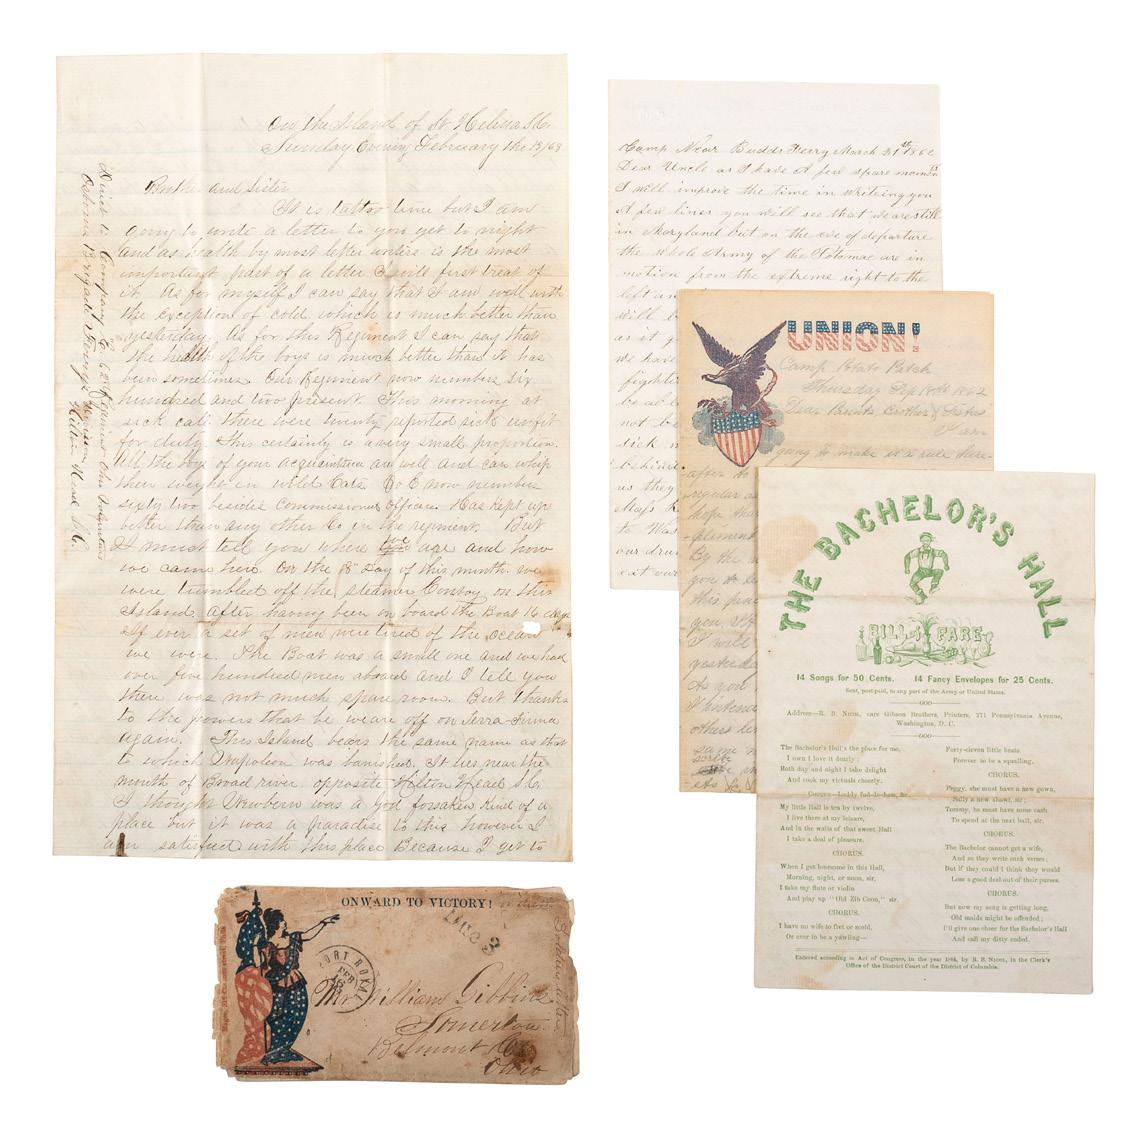 On the Island of St Helena S.C.
Sunday Evening February the 15/63
Brother and Sister
It is tattoo time but I am
going to write a letter to you yet to night
and as health by most letter writers is the most
important part of a letter I will first treat of
it. As for myself I can say that I am well with
the exception of cold which is much better than
yesterday. As for this Regiment I can say that
the health of the boys is much better than it has
been sometimes. Our Regiment now numbers six
hundred and two present. This morning at
sick call there were twenty reported sick unfit
for duty. This certainly is a very small proportion.
All the boys of your acquaintance are well and can whip
their weight in wild Cats. Co E now numbers
sixty two besides Commissioned Officers. Has kept up
better than any other Co in the regiment. But
I must tell you where we are and how
we came here. On the 8 day of this month we
were tumbled off the steamer Convoy on this
Island after having been on board the Boat 16 days
If ever a set of men were tired of the ocean
we were. The Boat was a small one and we had
over five hundred men aboard and I tell you
there was not much spare room. But thanks
to the powers that be we are off on Terra Firma
again. This Island bears the same name as that
to which Napoleon was banished. It lies near the
mouth of Broad river opposite Hilton Head S.C.
I thought Newbern was a god forsaken kind of a
place but it was a paradise to this however I
am satisfied with this place Because I get to
Direct to Company E 62 Regiment Ohio Volunteers
Osbornes Brigade Hilton Head S.C.
Camp Near Budds Ferry March 31st 1862
Dear Uncle as I have a few spare moments
I will improve the time in writing you
A few lines you will see that we are still
in Maryland but on the eve of departure
the whole Army of the Potomac are in
motion from the extreme right to the
left
will b
as it g
we have
fighte
be ab
not be
sick
behind
us they
to Was
our dru
UNION!
Camp Potato Patch
Thursday Sep 18th 1862
Dear Parents Brother & Sisters
I am
going to make it a rule here-
after to
regular as
hope tha
By the
you
this
I will
yesterda
As you
I intend
others
same
THE BACHELOR'S HALL
BILL of FARE
14 Songs for 50 Cents. 14 Fancy Envelopes for 25 Cents.
Sent, post-paid, to any part of the Army or United States.
Address—R. B. Nicol, care Gibson Brothers, Printers, 271 Pennsylvania Avenue,
Washington, D. C.
The Bachelor's Hall's the place for me,
I own I love it dearly;
Both day and night I take delight
And cook my victuals cheerly.
My little Hall is ten by twelve,
I live there at my leisure,
And in the walls of that sweet Hall
I take a deal of pleasure.
CHORUS.
When I get lonesome in this Hall,
Morning, night, or noon, sir,
I take my flute or violin
And play up "Old Zib Coon," sir.
CHORUS.
I have no wife to fret or scold,
Or ever to be a yawling—
Forty-eleven little brats
Forever to be a squalling.
CHORUS.
Peggy, she must have a new gown,
Sally a new shawl, sir;
Tommy, he must have some cash
To spend at the next ball, sir.
CHORUS.
The Bachelor cannot get a wife,
And so they write such verses;
But if they could I think they would
Lose a good deal out of their purses.
CHORUS.
But now my song is getting long,
Old maids might be offended;
I'll give one cheer for the Bachelor's Hall
And call my ditty ended.
Entered according to Act of Congress, in the year 1864, by R. B. Nicol, in the Clerk's
Office of the District Court of the District of Columbia.
ONWARD TO VICTORY!
DUE 3
PORT ROYAL
FEB
Mr William Gibbins
Somerton
Belmont Co
Ohio